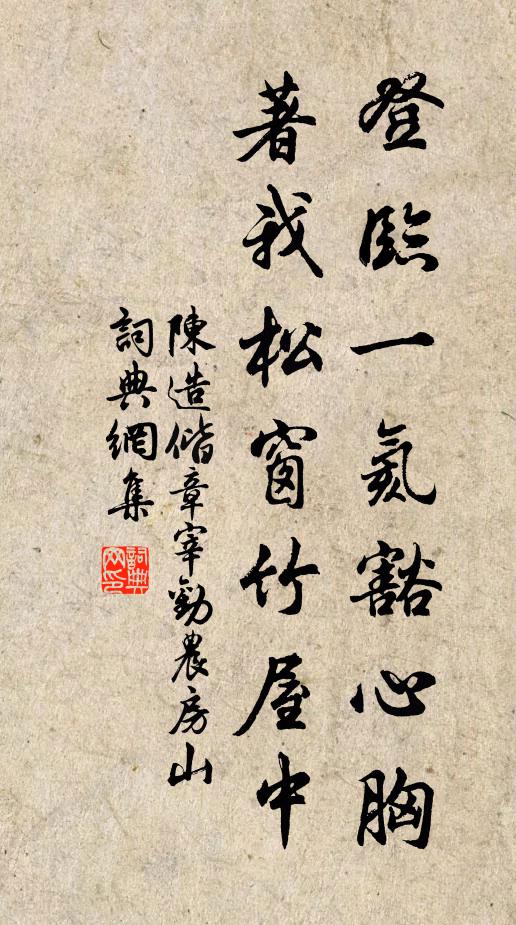 登臨一氣豁心胸
著我松窗竹屋中
陳造偕章宰勸農房山
詞典網集
詞典网印